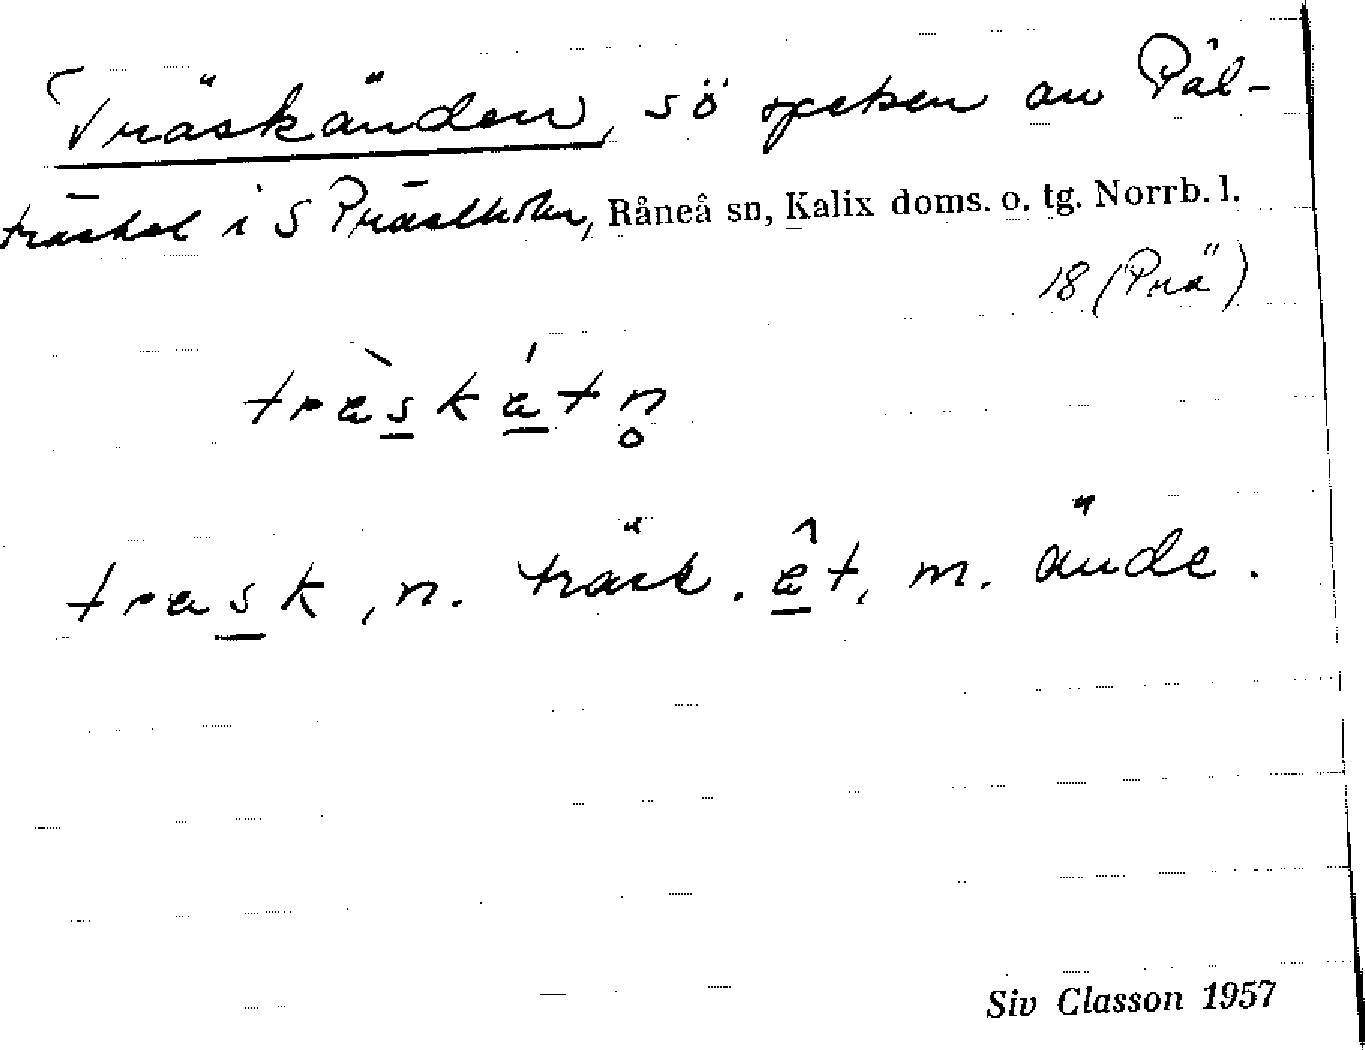 Träskänden, sö spetsen av Pål-
träsket i S Prästholm, Råneå sn, Kalix doms. o. tg. Norrb. l.
18 (Prä)
træ̀skǽtn̥
træsk, n. träsk. æ̂t, m. ände.
Siv Classon 1957